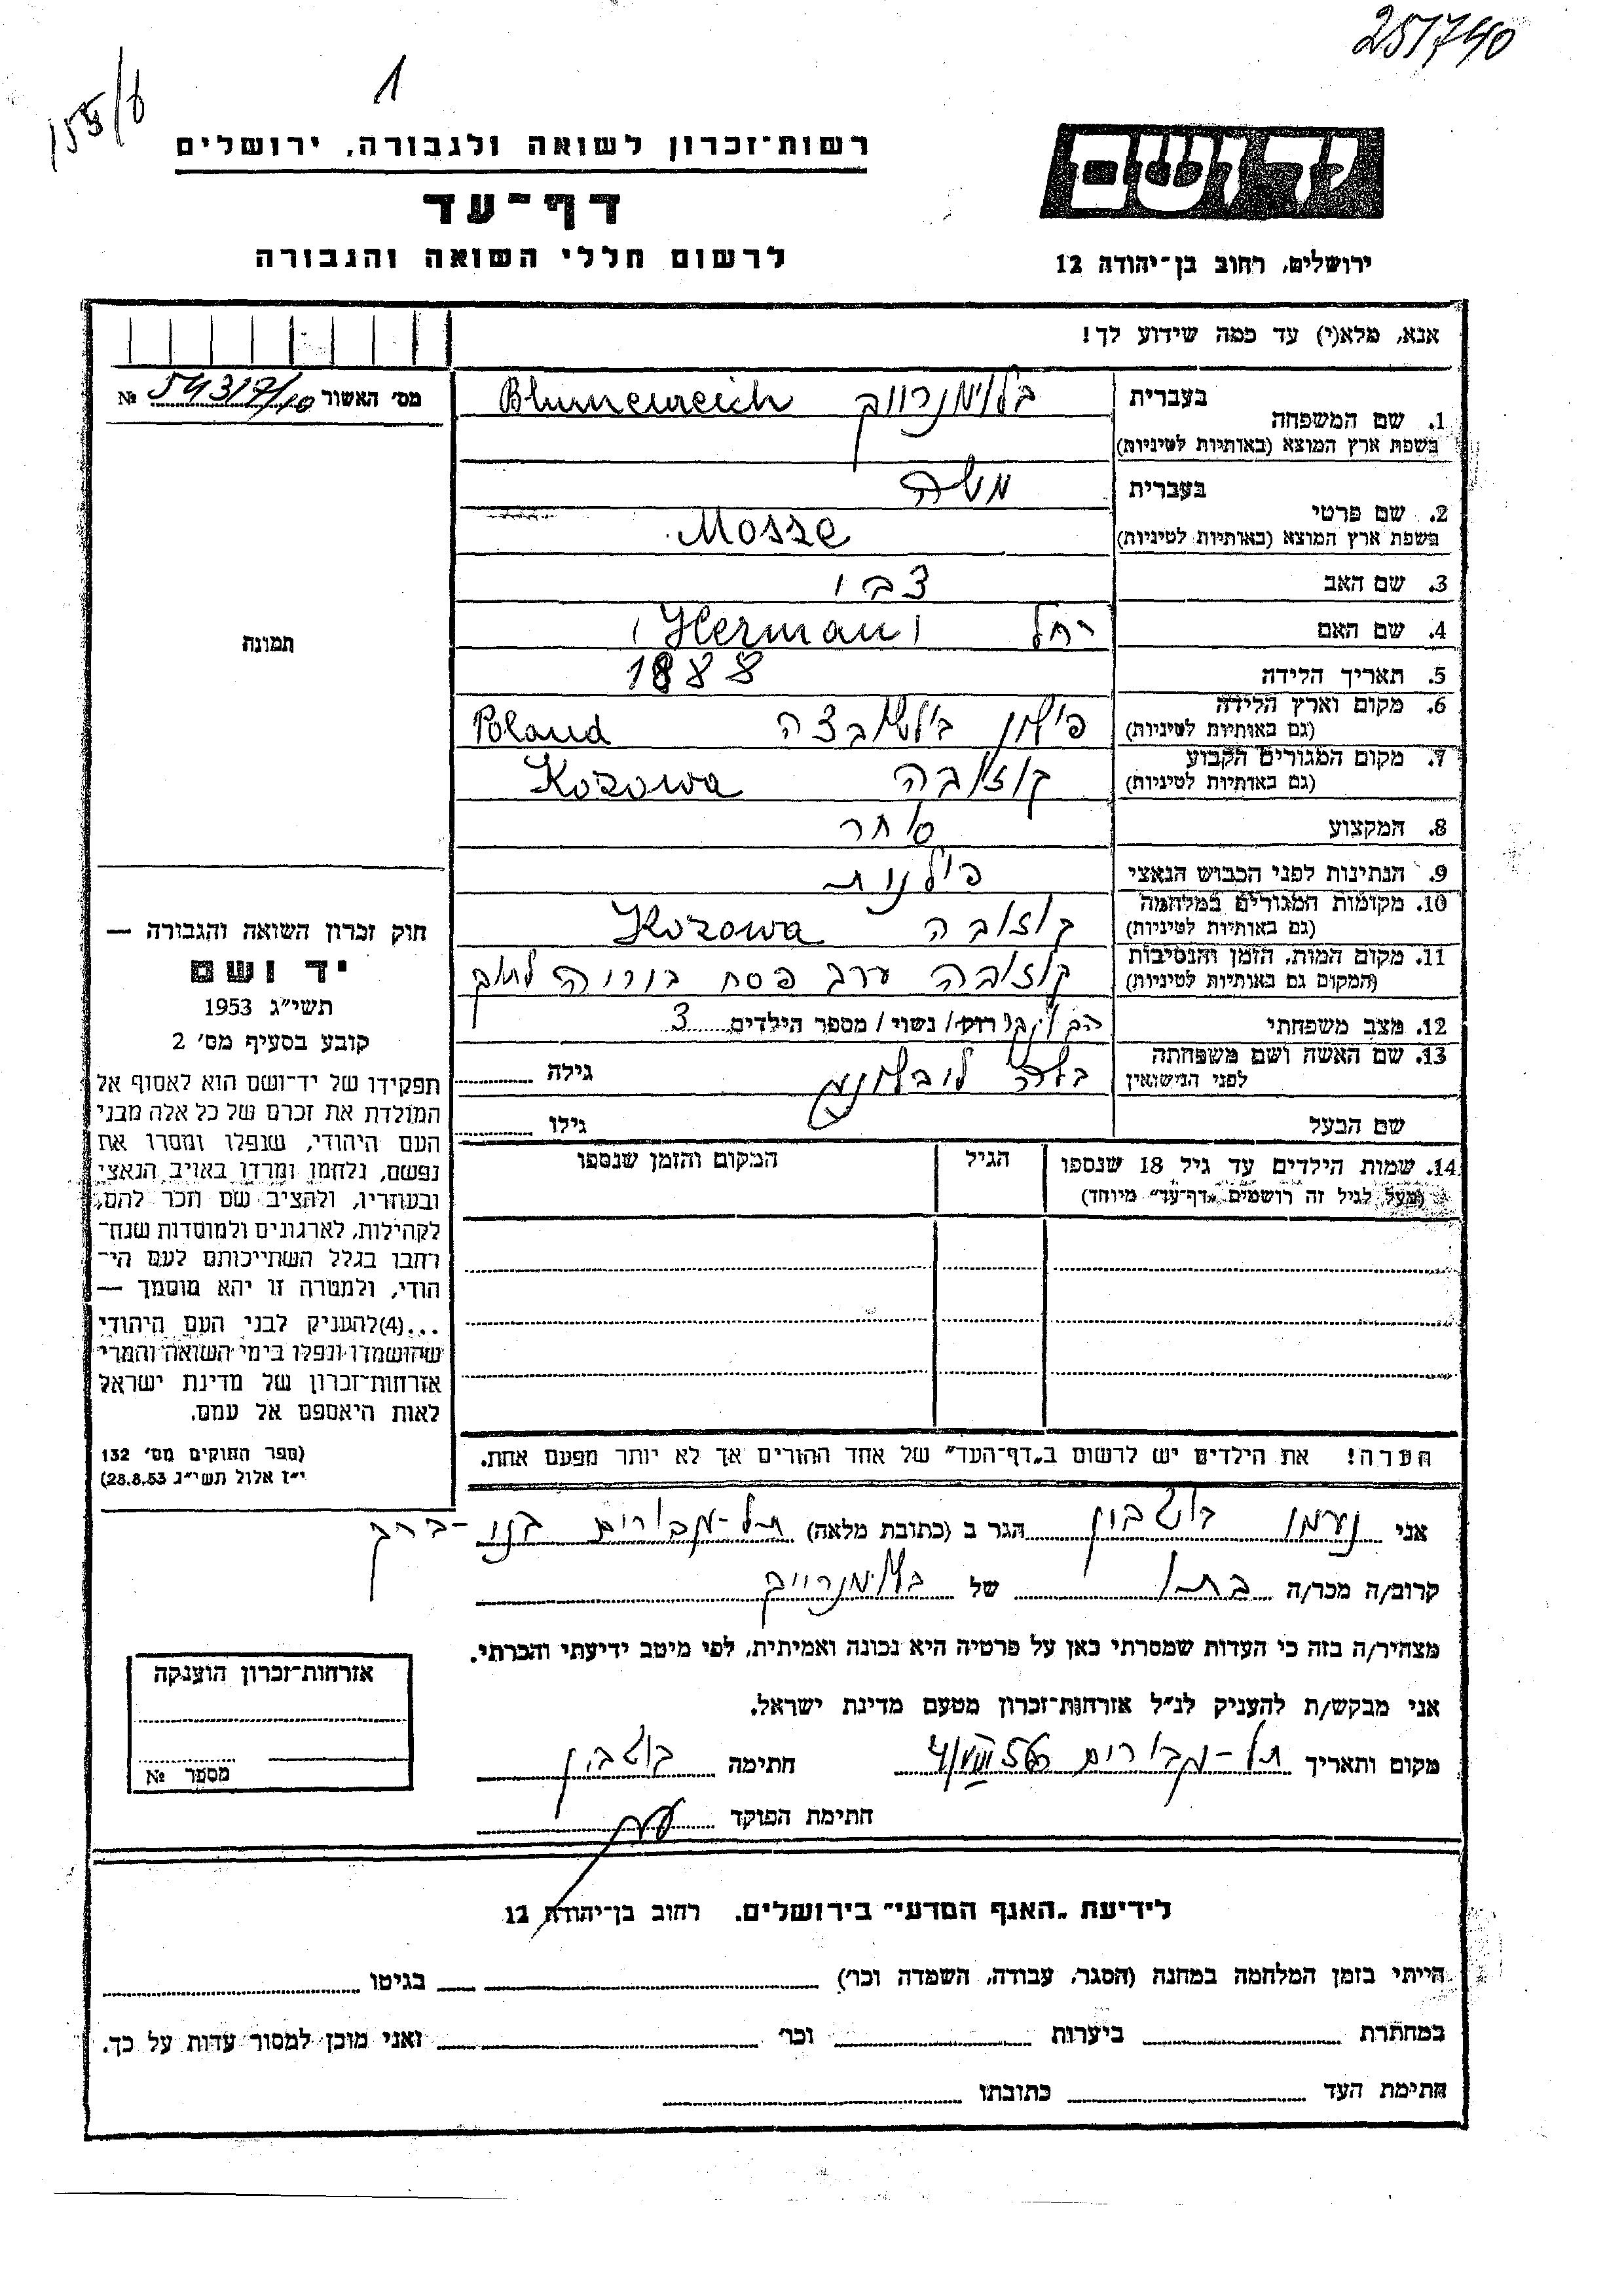 251740
1
155/6
יד ושם
רשות־זכרון לשואה ולגבורה, ירושלים
דף־עד
לרשום חללי השואה והגבורה
ירושלים, רחוב בן־יהודה 12
אנא, מלא(י) עד כמה שידוע לך!
מס׳ האשור 54317/10 №
1. שם המשפחה בעברית בלומנרייך Blumenreich
בשפת ארץ המוצא (באותיות לטיניות)
2. שם פרטי בעברית משה
בשפת ארץ המוצא (באותיות לטיניות) Mosze
3. שם האב צבי
4. שם האם רחל (Herman)
תמונה
5. תאריך הלידה 1888
6. מקום וארץ הלידה פולין Poland
(גם באותיות לטיניות)
7. מקום המגורים הקבוע קוזובה Kozowa
(גם באותיות לטיניות)
8. המקצוע סוחר
9. הנתינות לפני הכבוש הנאצי פולנית
10. מקומות המגורים במלחמה קוזובה Kozowa
(גם באותיות לטיניות)
11. מקום המות, הזמן והנסיבות קוזובה ערב פסח בורוה לתוך
(המקום גם באותיות לטיניות)
12. מצב משפחתי רווק / נשוי / מספר הילדים 3
13. שם האשה ושם משפחתה
לפני הנישואין גילה
שם הבעל גילו
14. שמות הילדים עד גיל 18 שנספו הגיל המקום והזמן שנספו
(מעל לגיל זה רושמים „דף־עד״ מיוחד)
חוק זכרון השואה והגבורה —
יד ושם
תשי״ג 1953
קובע בסעיף מס׳ 2
תפקידו של יד־ושם הוא לאסוף אל
המולדת את זכרם של כל אלה מבני
העם היהודי, שנפלו ומסרו את
נפשם, נלחמו ומרדו באויב הנאצי
ובעוזריו, ולהציב שם וזכר להם,
לקהילות, לארגונים ולמוסדות שנח־
רבו בגלל השתייכותם לעם הי־
הודי, ולמטרה זו יהא מוסמך —
...(4) להעניק לבני העם היהודי
שהושמדו ונפלו בימי השואה והמרי
אזרחות־זכרון של מדינת ישראל
לאות היאספם אל עמם.
(ספר החוקים מס׳ 132
י״ז אלול תשי״ג 28.8.53)
הערה! את הילדים יש לרשום ב„דף־העד״ של אחד ההורים אך לא יותר מפעם אחת.
אני נעמי בוטבון הגר ב (כתובת מלאה) תל-גבורים בני-ברק
קרוב/ה מכר/ה בתו של בלומנרייך
מצהיר/ה בזה כי העדות שמסרתי כאן על פרטיה היא נכונה ואמיתית, לפי מיטב ידיעתי והכרתי.
אני מבקש/ת להעניק לנ״ל אזרחות־זכרון מטעם מדינת ישראל.
מקום ותאריך תל-גבורים 4/VIII 56 חתימה בוטבון
חתימת הפוקד
אזרחות־זכרון הוענקה
מספר №
לידיעת „האגף המדעי״ בירושלים, רחוב בן־יהודה 12
הייתי בזמן המלחמה במחנה (הסגר, עבודה, השמדה וכו׳) בגיטו
במחתרת ביערות וכו׳ ואני מוכן למסור עדות על כך.
חתימת העד כתובתו